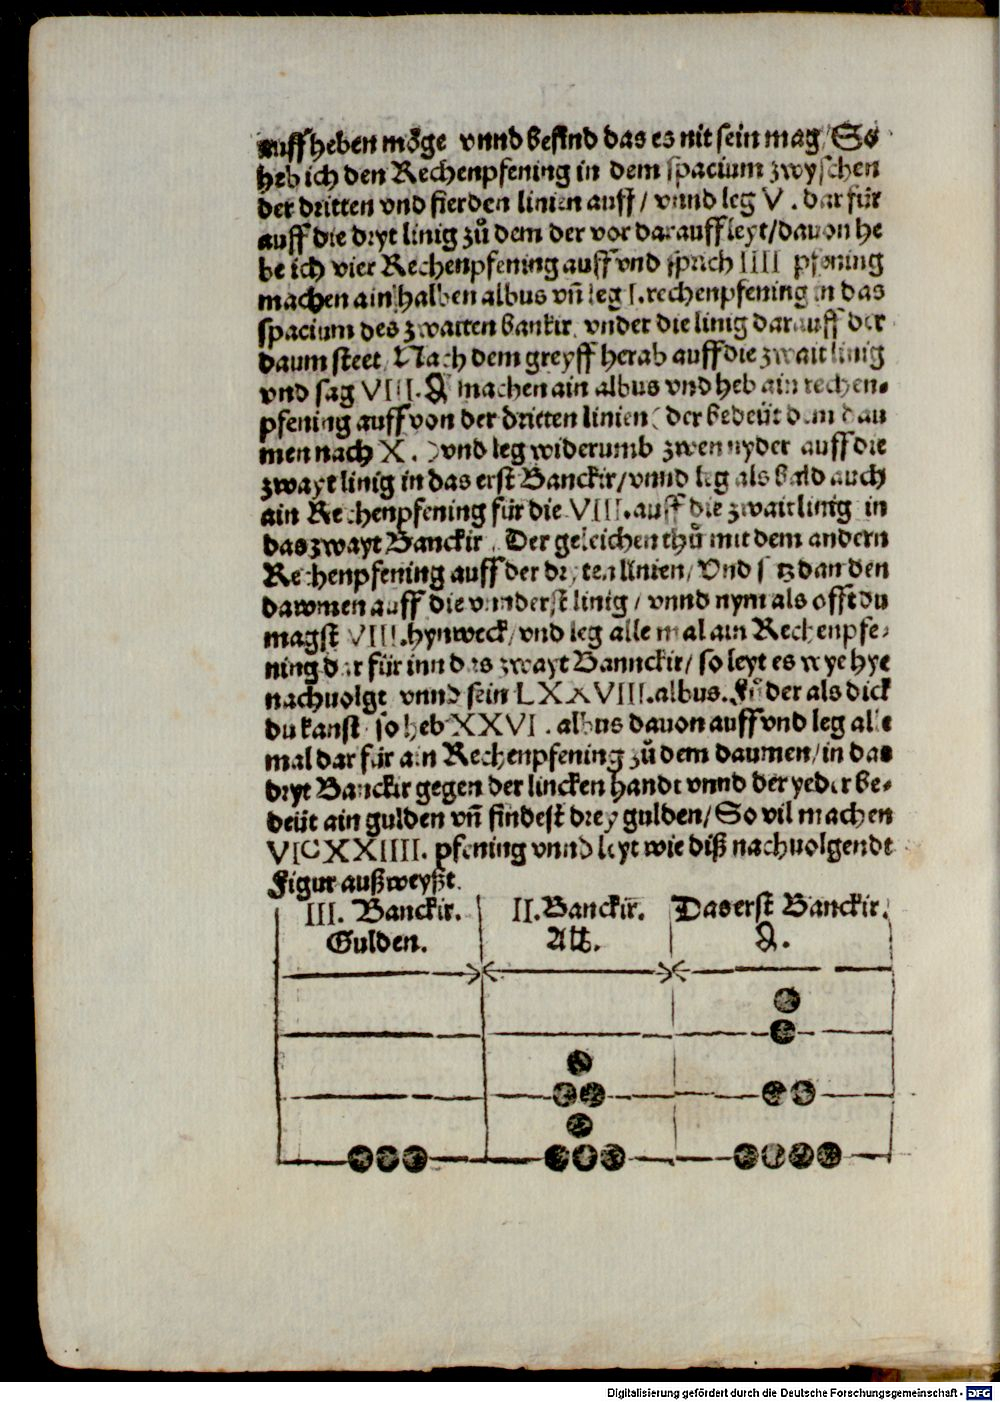 auffheben möge vnnd befind das es nit sein mag / So
heb ich den Rechenpfening in dem spacium zwyschen
der dritten vnd fierden linien auff / vnnd leg V. dar für
auff die dryt linig zů dem der vor darauff leyt / dauon he
be ich vier Rechenpfening auff vnd sprich IIII pfening
machen ain halben albus vñ leg I. rechenpfening in das
spacium des zwaiten bankir vnder die linig darauff der
daum steet / Nach dem greyff herab auff die zwait linig
vnd sag VIII. ₰ machen ain albus vnd heb ain rechen-
pfening auff von der dritten linien (der bedeüt dem dau
men nach X.) vnd leg widerumb zwen nyder auff die
zwayt linig in das erst Banckir / vnnd leg als bald auch
ain Rechenpfening für die VIII. auff die zwait linig in
das zwayt Banckir. Der geleichen thů mit dem andern
Rechenpfening auff der dryten linien / Vnd setz dan den
dawmen auff die vnnderst linig / vnnd nym als offt du
magst VIII. hynweck / vnd leg alle mal ain Rechenpfe-
ning dar für inn das zwayt Bannckir / so leyt es wye hye
nachuolgt vnnd sein LXXVIII. albus. Fůder als dick
du kanst so heb XXVI. albus dauon auff vnd leg alle
mal dar für ain Rechenpfening zů dem daumen / in das
dryt Banckir gegen der lincken handt vnnd der yeder be-
deüt ain gulden vñ findest drey gulden / So vil machen
VICXXIIII. pfening vnnd leyt wie diß nachuolgendt
Figur außweyßt.
III. Banckir. II. Banckir. Das erst Banckir.
Gulden. Alb. ₰.
Digitalisierung gefördert durch die Deutsche Forschungsgemeinschaft - DFG